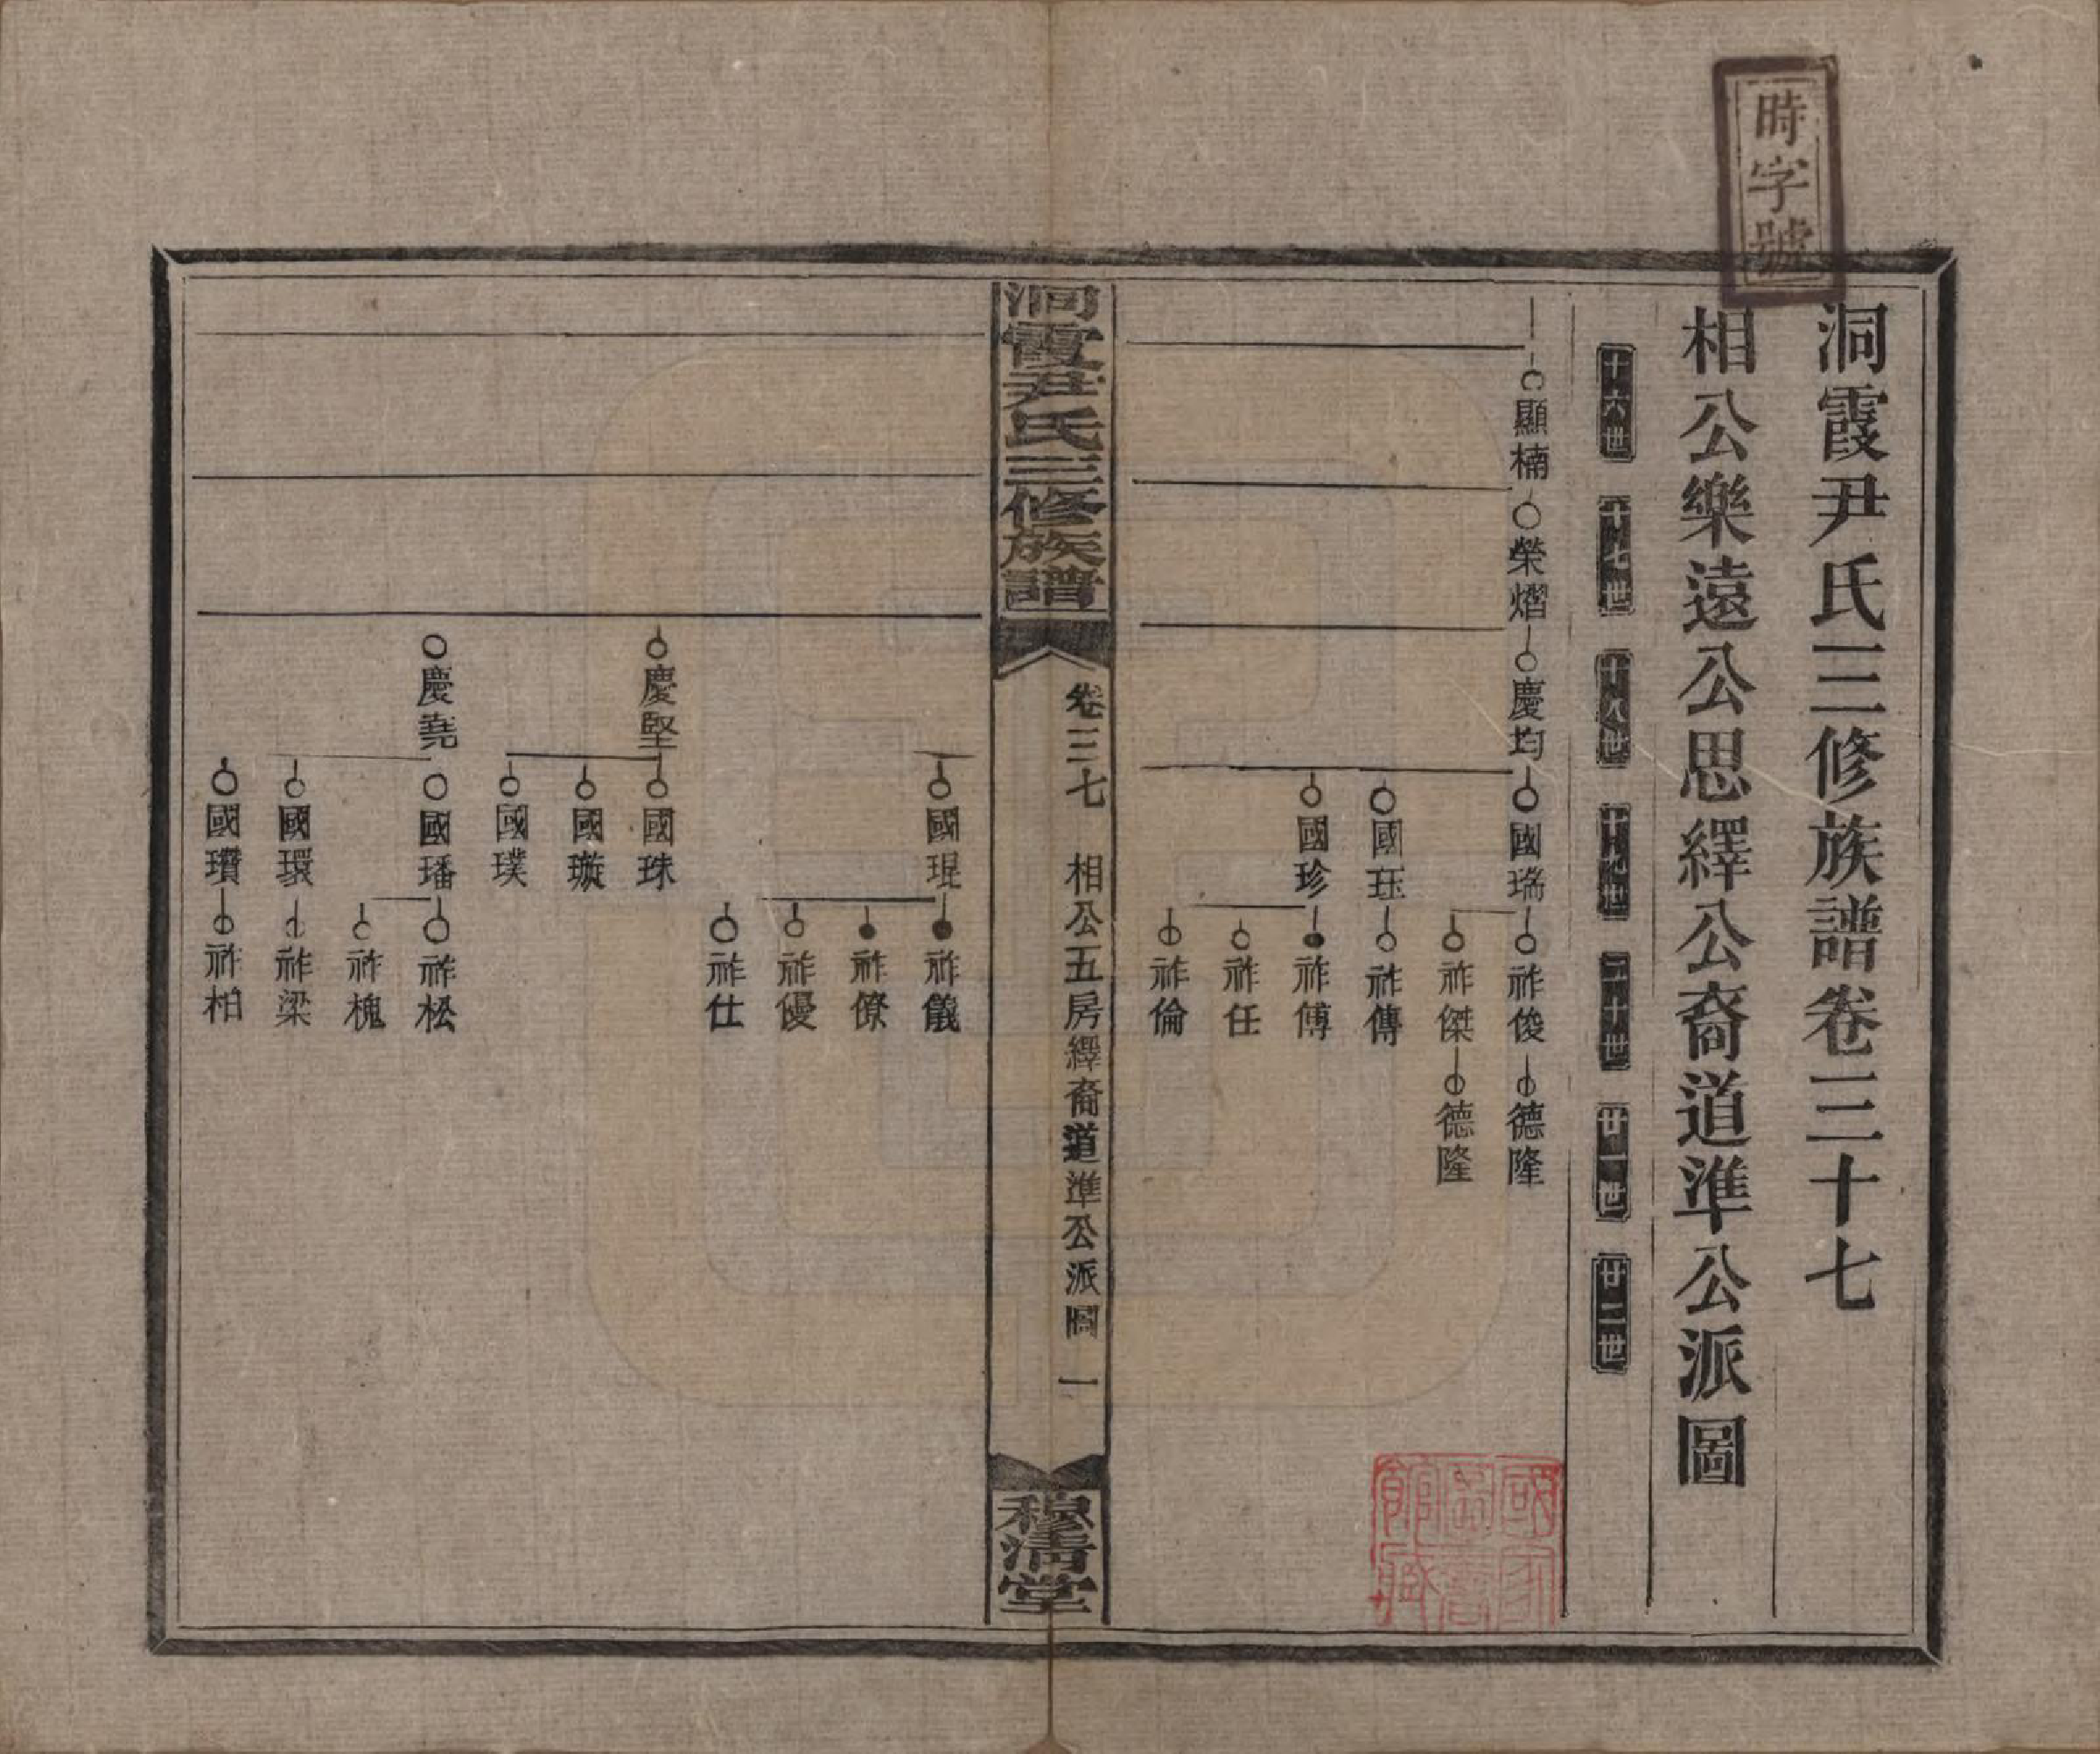 時字號
洞霞尹氏三修族譜卷三十七
相公樂遠公思繹公裔道準公派圖
十六世 十七世 十八世 十九世 二十世 廿一世 廿二世
顯楠 榮熠 慶均 國瑞 祚俊 德隆
祚傑 德隆
國珏 祚傳
國珍 祚傅
祚任
祚倫
洞霞尹氏三修族譜
卷三七 相公五房繹裔道準公派圖 一
穆清堂
國琨 祚儀
祚僚
祚優
祚仕
慶堅 國珠
國璇
國璞
慶堯 國璠 祚松
祚槐
國環 祚梁
國瓚 祚柏
國家圖書館藏